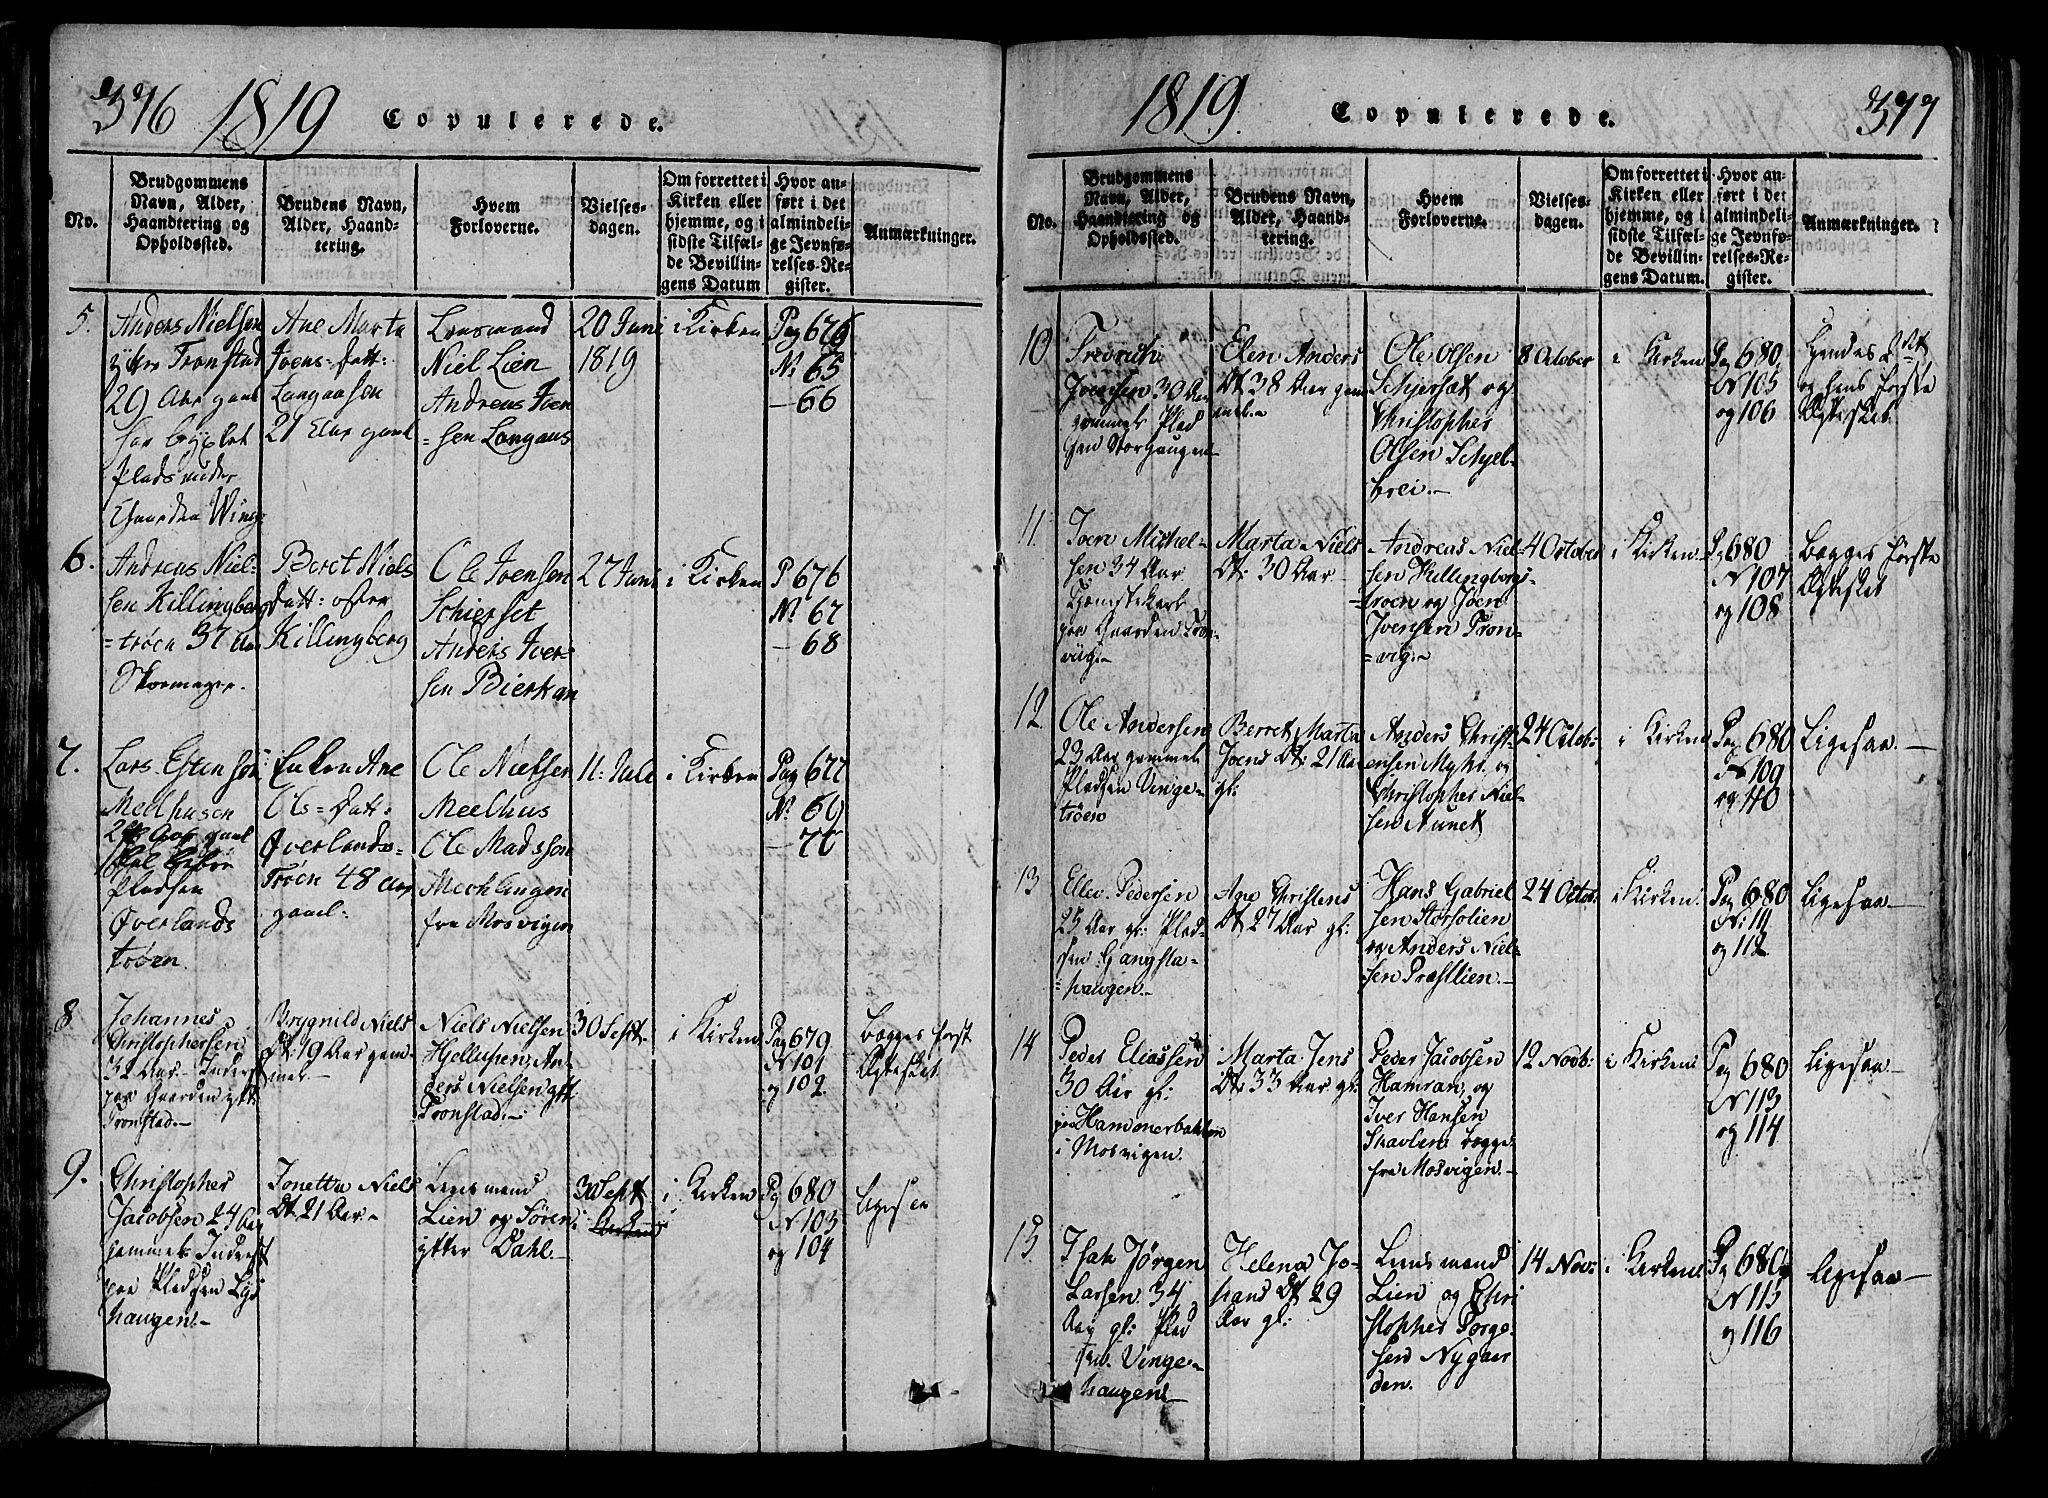 376 1819 Copulerede.
No.
Brudgommens
Navn, Alder,
Haandtering og
Opholdssted.
Brudens Navn,
Alder, Haand-
tering.
Hvem
Forloverne.
Vielses-
dagen.
Om forrettet i
Kirken eller
hjemme, og i
sidste Tilfæl-
de Bevillin-
gens Datum
Hvor an-
ført i det
almindeli-
ge Jevnfø-
relses-Re-
gister.
Anmærkninger.
5.
Anders Nielsen
ytter Tronstad
29 Aar gaml
har byxlet
Plads under
Gaarden Wing
Ane Marta
Ivens-Datt:
Langaasen
21 Aar gaml
Lensmand
Niel Lien
Andreas Iven
=sen Langaas
20 Juni
1819
i Kirken
Pag 676
No 65
— 66
6.
Andreas Niel-
sen Killingberg
=trøen 37 Aar
Skomager.
Beret Niels
Datt: ofter
Killingberg
Ole Ivensen
Schierset
Anders Iver-
sen Bierkan
27 Juni
i Kirken
P 676
No 67
— 68
7.
Lars Estensön
Meelhusen
Pladsen
Øverlands
trøen
Ane
Ols=Datt:
Øverlands=
Trøen 48 Aar
gaml:
Ole Nielsen
Meelhus
Ole Madssøn
fra Mosvigen
11: Juli
i Kirken
Pag 677
No 69
8
Johannes
Christophersen
32 Aar Inderst
paa Gaarden ytt:
Tronstad.—
Brygnild Niels
Dt: 19 Aar gam-
mel.—
Niels Nielsen
Hjellupen, An-
ders Nielsen ytt:
Tronstad.—
30 Sept.
i Kirken
Pag 679
N 101
og 102.
Begges først
Ægteskab
9.
Christopher
Jacobsen 24 Aar
gammel Inderst
paa Pladsen
haugen.—
Jonetta Niels
Dt. 21 Aar.—
Lensmand
Lien og Søren
ytter Dahl.—
30 Sept
i Kirken
Pg 680
N 103
og 104
Ligesaa
1819. Copulerede. 377
No.
Brudgommens
Navn, Alder,
Haandtering og
Opholdssted.
Brudens Navn,
Alder, Haand-
tering.
Hvem
Forloverne.
Vielses-
dagen.
Om forrettet i
Kirken eller
hjemme, og i
sidste Tilfæl-
de Bevillin-
gens Datum.
Hvor an-
ført i det
almindeli-
ge Jevnfø-
relses-Re-
gister.
Anmærkninger.
10
Fredrich
Joensen 30 Aar
gammel Plad
sen Storhaugen—
Elen Anders
Dt. 38 Aar gam
mel.—
Ole Olsen
Schjerset og
Christopher
Olsen Schjel-
brei.—
8 October
i Kirken
Pg 680
N 105
og 106
Hendes 2det
og hans første
Ægteskab
11.
Iven Michel-
sen 34 Aar
paa Gaarden Tron-
viig.—
Marta Niels
Dt: 30 Aar
Andreas Niel-
sen Killingberg-
=troen og Joen
Ivensen Tron-
=vig.—
4 October
i Kirken
Pg 680
N 107
og 108
Begges første
Ægteskab
12
Ole Andersen
23 Aar gammel
Pladsen Vinge-
trøen
Berret Marta
Joens Dt: 21 Aar
gl:
Anders Christ-
ensen Myhr og
Christopher Niel-
sen Aunet
24 Octob:
i Kirken
Pag 680
N 109
og 110
Ligesaa.—
13
Ellev Pedersen
25 Aar gl: Plad-
sen Gangsta-
=haugen.—
Ane Christens
Dt. 27 Aar gl:
Hans Gabriel
sen Storsolien
og Anders Niel-
sen Præstlien.—
24 Octob:
i Kirken.
Pag 680
N: 111
og 112
Ligesaa.—
14
Peder Eliassen
30 Aar gl:
paa Hammerbakken
i Mosvigen.
Marta Jens
Dt: 33 Aar gl:
Peder Jacobsen
Hamran, og
Iver Hansen
Skavlen begge
fra Mosvigen.—
12 Novb:
i Kirken
Pag 680
N 113
og 114
Ligesaa.—
15
Isak Jørgen
Larsen 34
Aar gl: Plad
sen Vinge-
haugen.—
Helena Jo-
hans Dt 29
Aar gl:
Lensmand
Lien og Chri
stopher Torge-
sen Nygaar
den.
14 Nov:
i Kirken
Pg 680
N 115
og 116
Ligesaa—